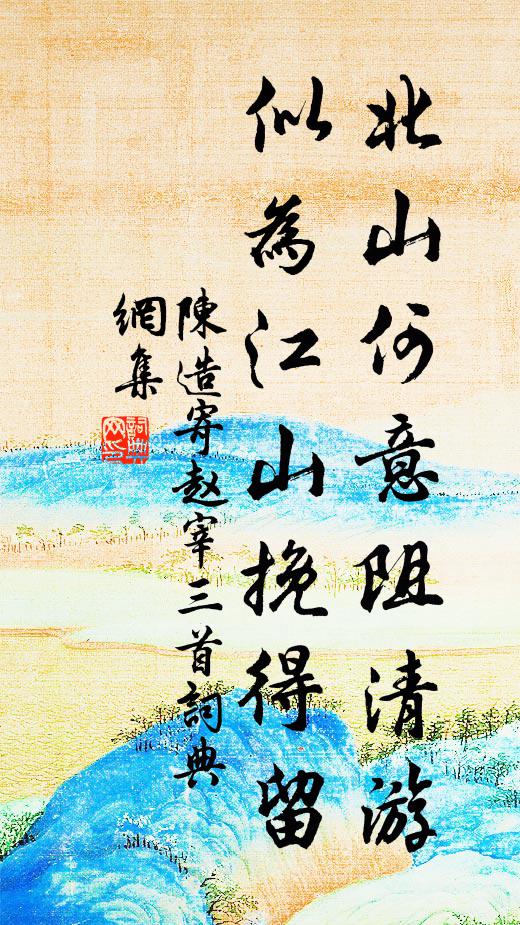 北山何意阻清游
似為江山挽得留
陳造寄赵宰三首詞典
網集
詞典
网